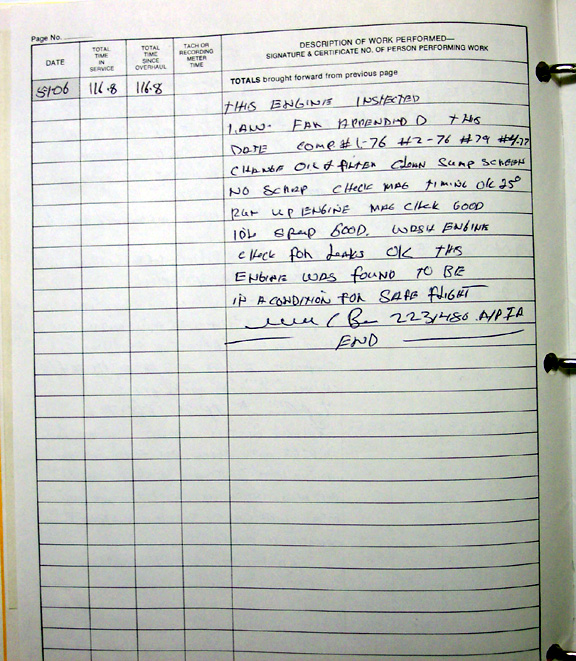 Page No.
DATE
TOTAL TIME IN SERVICE
TOTAL TIME SINCE OVERHAUL
TACH OR RECORDING METER TIME
DESCRIPTION OF WORK PERFORMED—
SIGNATURE & CERTIFICATE NO. OF PERSON PERFORMING WORK
TOTALS brought forward from previous page
116.8 116.8
THIS ENGINE INSPECTED
I.A.W. FAR APPENDIX D THIS
DATE COMP #1-76 #2-76 #3-79 #4-77
CHANGE OIL & FILTER CLEAN SUMP SCREEN
NO SCRAP CHECK MAG TIMING OK 25°
RUN UP ENGINE MAG CHECK GOOD
IDL SPEED GOOD. WASH ENGINE
CHECK FOR LEAKS OK THIS
ENGINE WAS FOUND TO BE
IN A CONDITION FOR SAFE FLIGHT
2231480 A/P IA
END